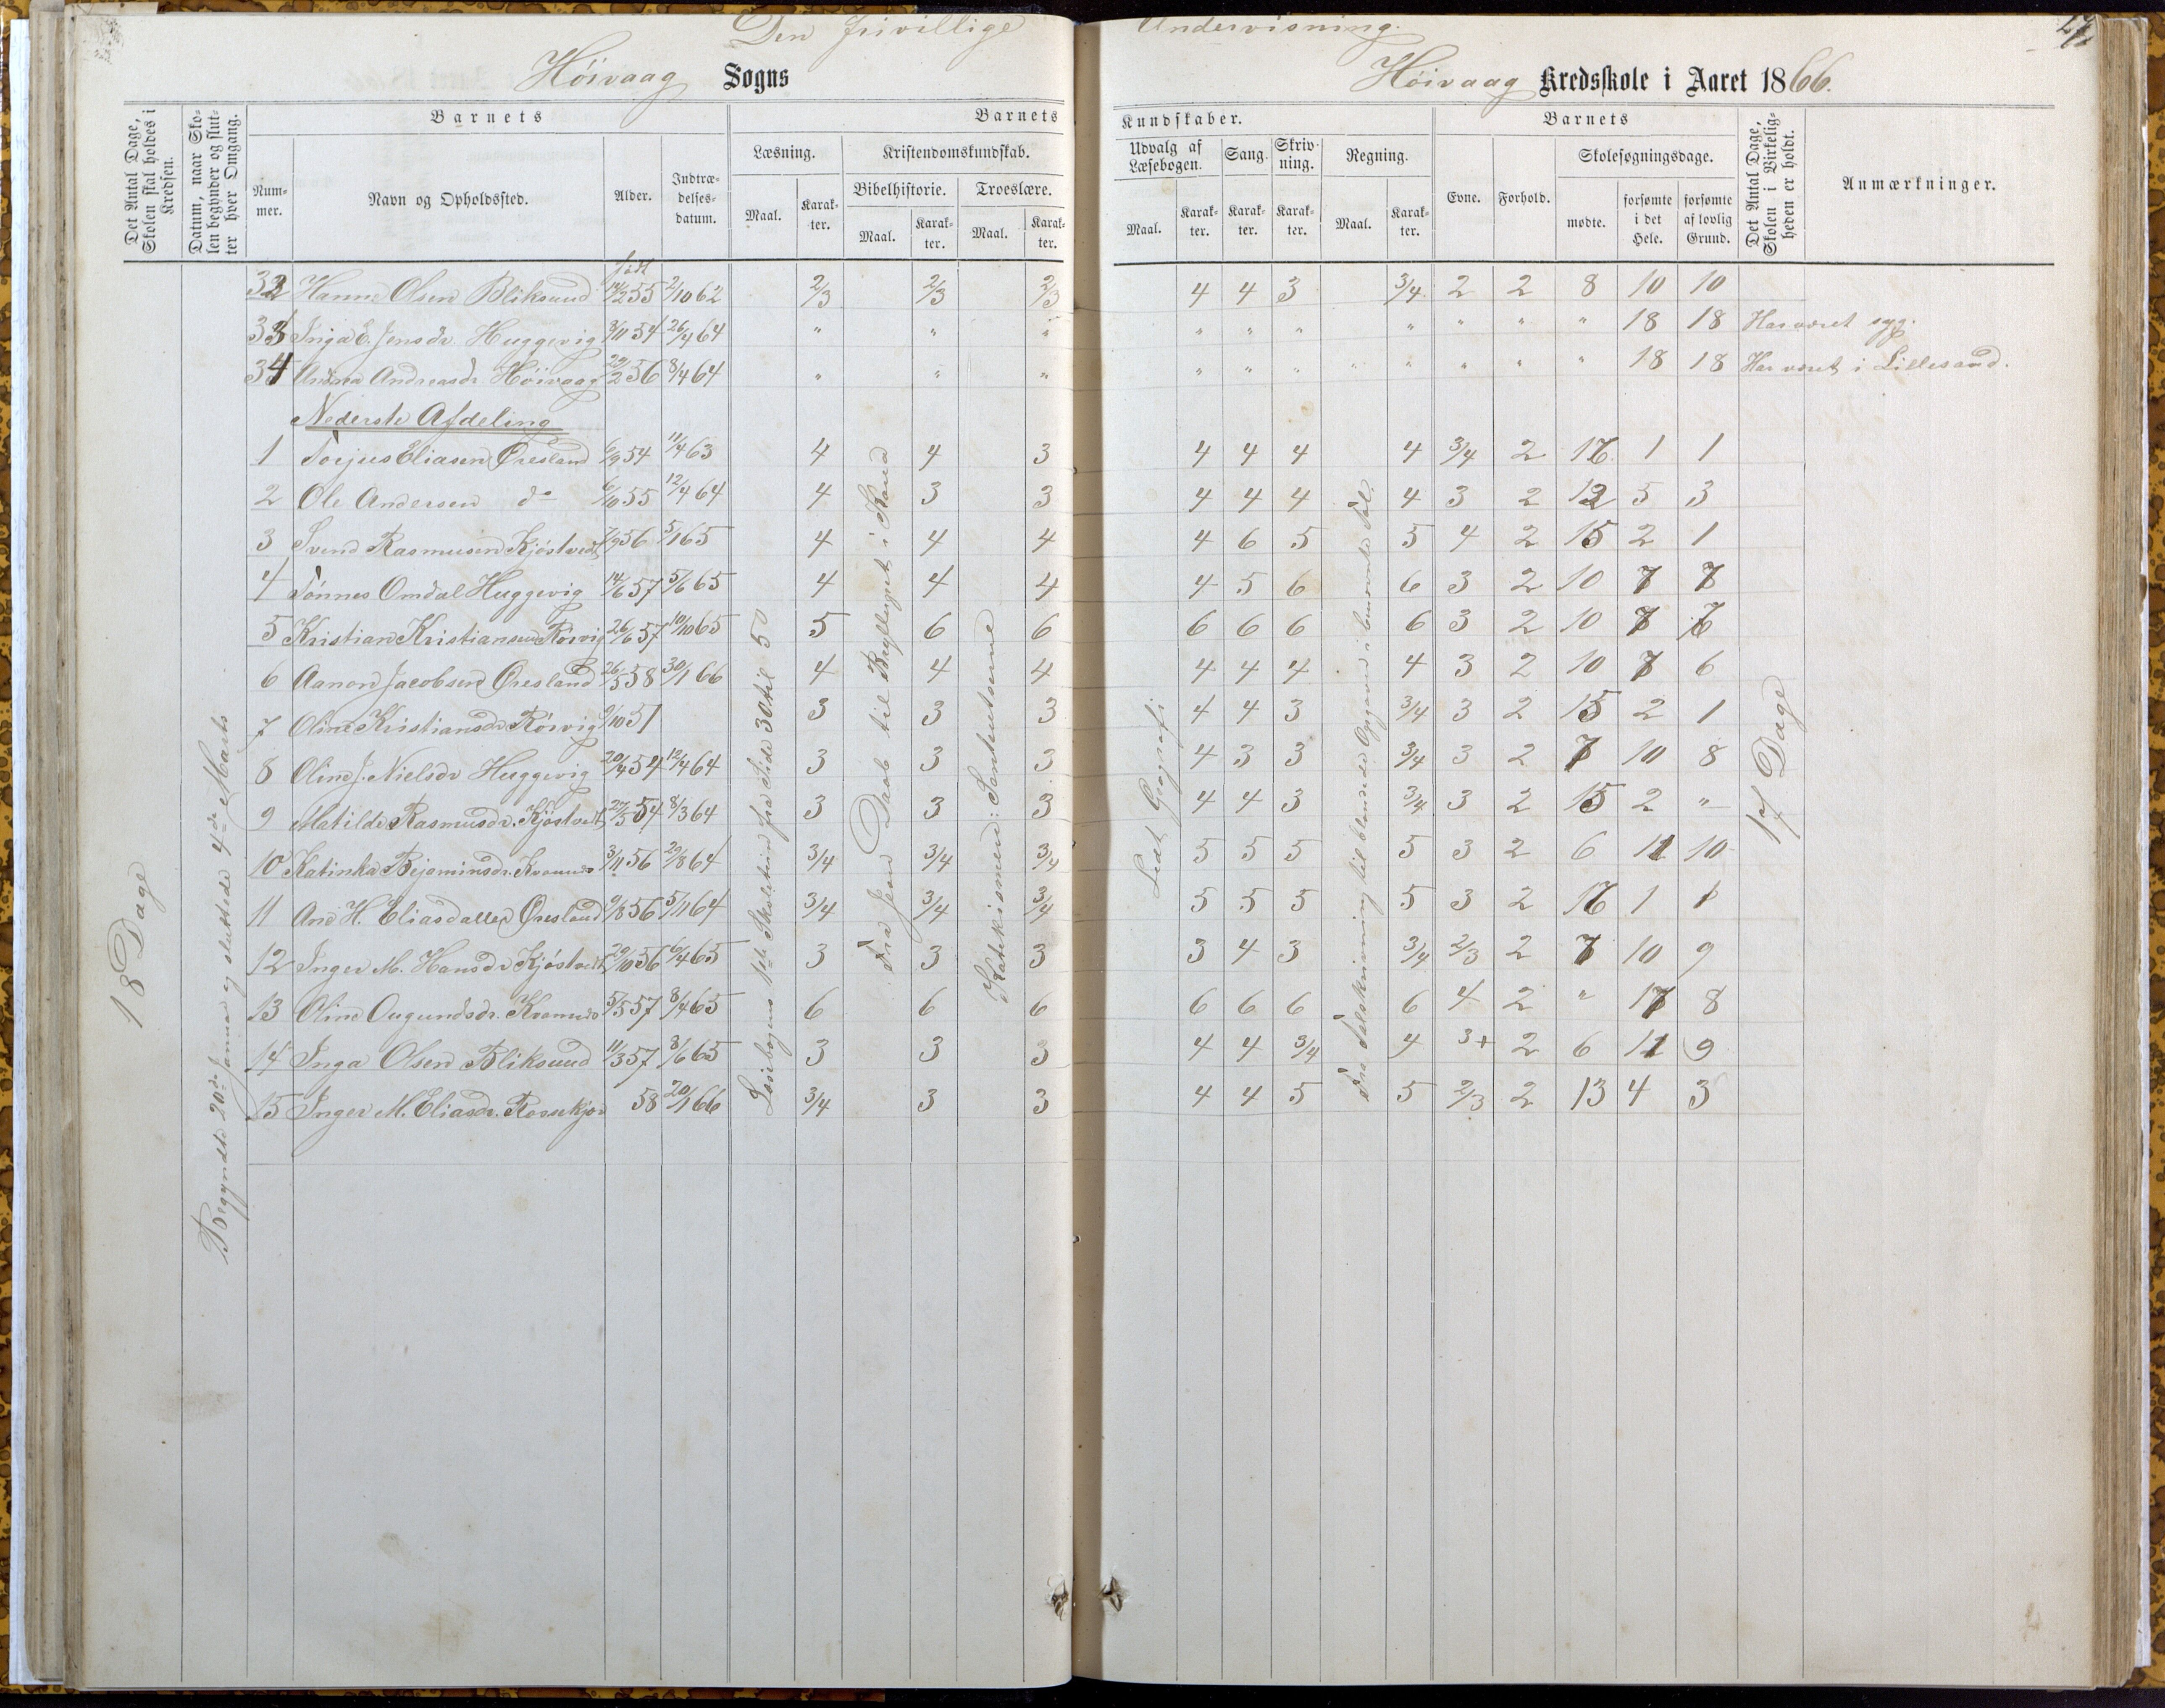 Den frivillige Undervisning.
Höivaag Sogns
Höivaag Kredsskole i Aaret 1866.
Det Antal Dage, Skolen skal holdes i Kredsen.
Datum, naar Skolen begynder og slutter hver Omgang.
Barnets
Nummer.
Navn og Opholdssted.
Alder.
Indtrædelsesdatum.
Barnets Kundskaber.
Læsning.
Maal.
Karakter.
Kristendomskundskab.
Bibelhistorie.
Maal.
Karakter.
Troeslære.
Maal.
Karakter.
Udvalg af Læsebogen.
Maal.
Karakter.
Sang.
Karakter.
Skrivning.
Karakter.
Regning.
Maal.
Karakter.
Barnets
Evne.
Forhold.
Skolesøgningsdage.
mødte.
forsømte i det Hele.
forsømte af lovlig Grund.
Det Antal Dage, Skolen i Virkeligheden er holdt.
Anmærkninger.
født
32 Hanne Olsen Bliksund 14/2 55 2/10 62 2/3 2/3 2/3 4 4 3 3/4 2 2 8 10 10
33 Inga E. Jensdr. Huggevig 8/11 54 26/4 64 " " " " " " " " " " 18 18 Har været syg.
34 Andreasdr Höivaag 29/2 56 8/4 64 " " " " " " " " " " " 18 18 Har været i Lillesand.
Nederste Afdeling
1 Torjus Eliasen Øresland 6/9 54 11/4 63 4 4 3 4 4 4 4 3/4 2 16 1 1
2 Ole Andersen do 6/10 55 12/4 64 4 3 3 4 4 4 4 3 2 12 5 3
3 Svend Rasmusen Kjöstvedt 7/9 56 5/1 65 4 4 4 4 6 5 5 4 2 15 2 1
4 Tönnes Omdal Huggevig 14/6 57 5/6 65 4 4 4 4 5 6 6 3 2 10 7 7
5 Kristian Kristiansen Rörvig 26/6 57 10/10 65 5 6 6 6 6 6 6 3 2 10 7
6 Aanon Jacobsen Øresland 26/5 58 30/1 66 4 4 4 4 4 4 4 3 2 10 7 6
7 Oline Kristiansdr Rörvig 9/10 51 3 3 3 4 4 3 3/4 3 2 15 2 1
8 Oline J. Nielsdr Huggevig 20/4 54 12/4 64 3 3 3 4 3 3 3/4 3 2 7 10 8
9 Matilde Rasmusdr. Kjöstvedt 27/5 54 8/3 64 3 3 3 4 4 3 3/4 3 2 15 2 "
10 Katinka Bejaminsdr. 3/11 56 29/8 64 3/4 3/4 3/4 5 5 5 5 3 2 6 11 10
11 Ane H. Eliasdatter Øresland 9/8 56 5/11 64 3/4 3/4 3/4 5 5 5 5 3 2 16 1 1
12 Inger M. Hansdr Kjöstvedt 29/10 56 6/4 65 3 3 3 3 4 3 3/4 2/3 2 7 10 9
13 Oline 5/5 57 8/4 65 6 6 6 6 6 6 6 4 2 " 17 8
14 Inga Olsen Bliksund 11/3 57 8/6 65 3 3 3 4 4 3/4 4 3+ 2 6 11 9
15 Inger M. Eliasdr. 58 20/1 66 3/4 3 3 4 4 5 5 2/3 2 13 4 3
18 Dage
Begyndte 20de og sluttede 4de Marts
Læsebogens 1ste Skoletrin fra Side 30 til 50
Fra Jesu Daab til Bryllupet i Kana
Katekismen: Sententserne
Lidt Geografi
Fra Talskrivning til blandede Opgaver i benævnte Tal.
17 Dage